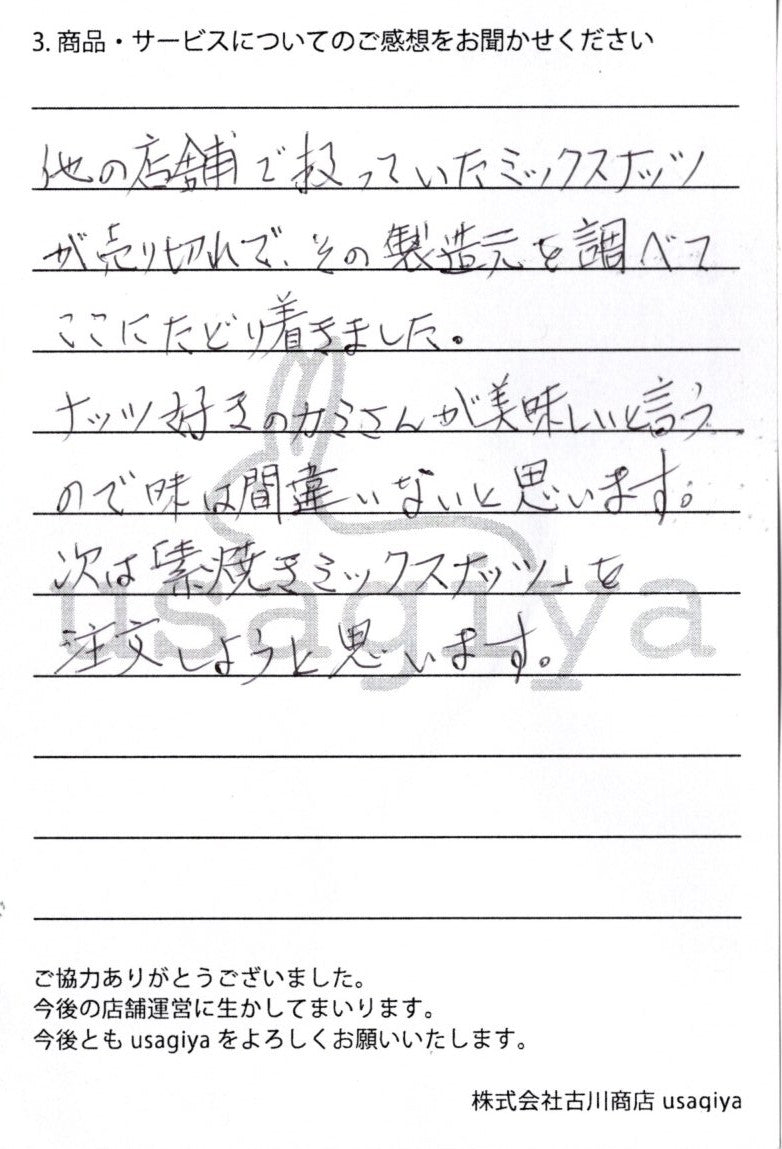 3. 商品・サービスについてのご感想をお聞かせください
他の店舗で扱っていたミックスナッツ
が売り切れで、その製造元を調べて
ここにたどり着きました。
ナッツ好きのカミさんが美味しいと言う
ので味は間違いないと思います。
次は「素焼きミックスナッツ」を
注文しようと思います。
usagiya
ご協力ありがとうございました。
今後の店舗運営に生かしてまいります。
今後とも usagiya をよろしくお願いいたします。
株式会社古川商店 usagiya